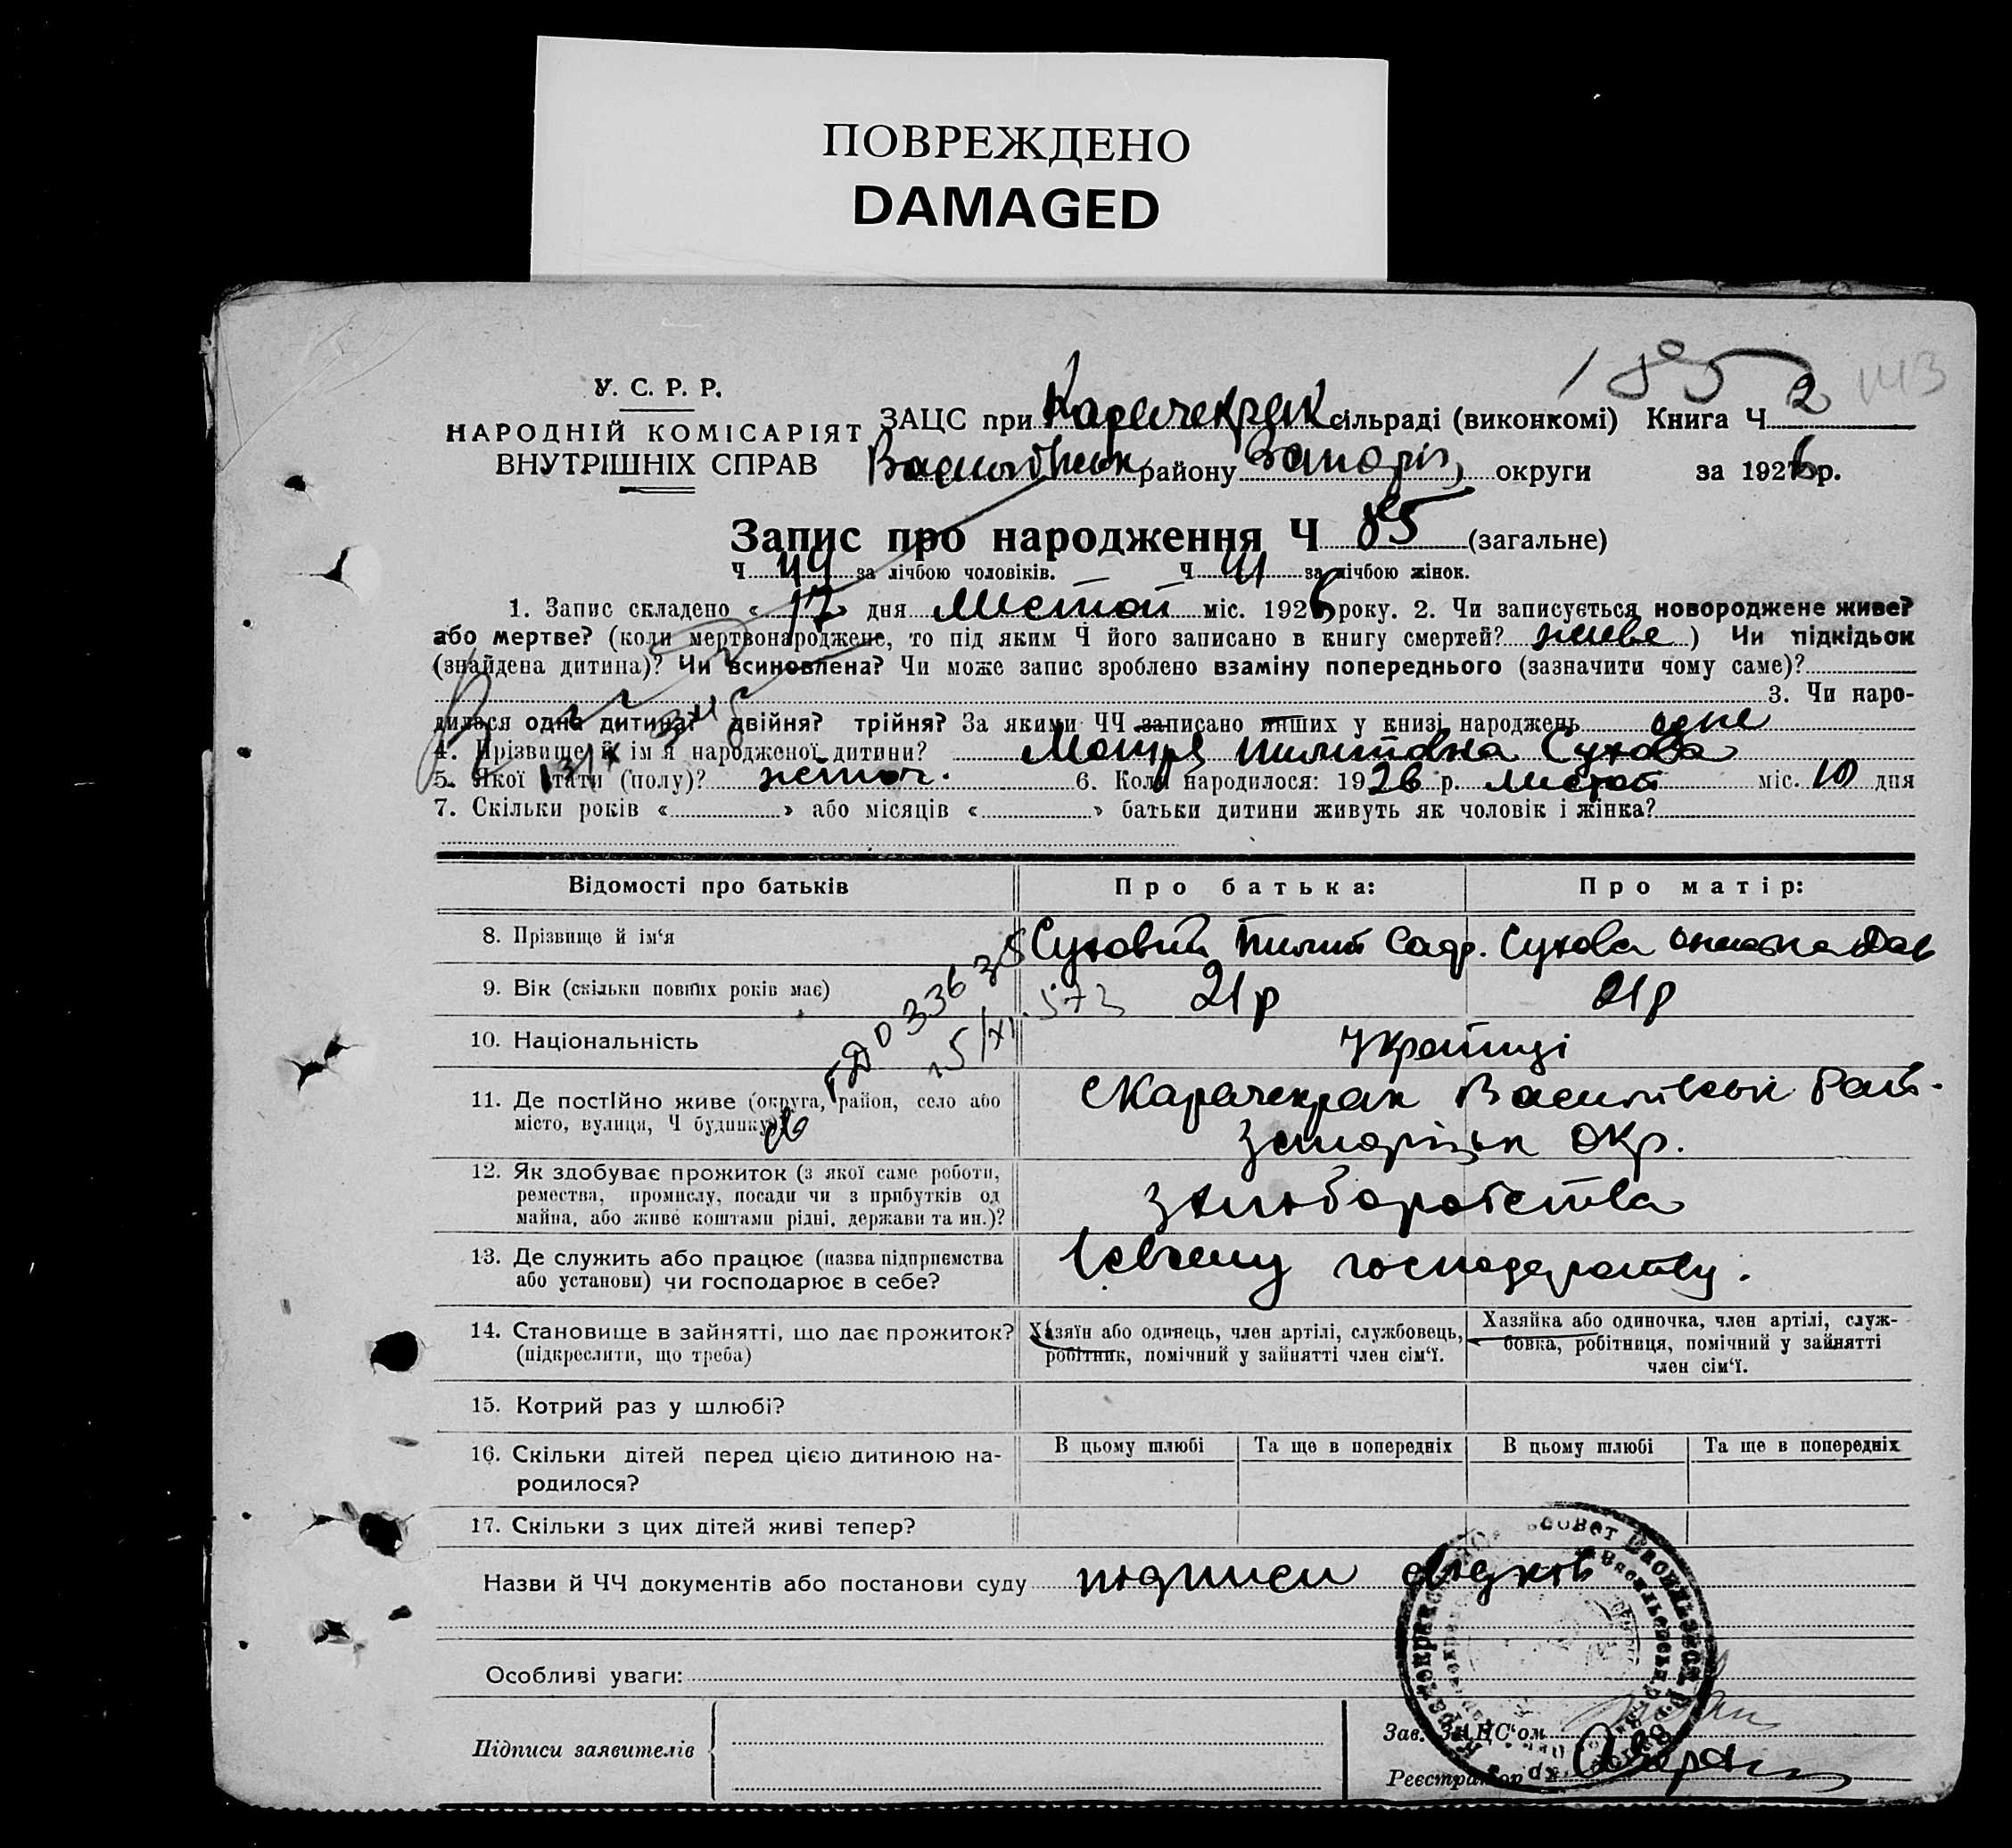 ПОВРЕЖДЕНО
DAMAGED
У. С. Р. Р.
НАРОДНІЙ КОМІСАРІЯТ
ВНУТРІШНІХ СПРАВ
ЗАЦС при Карачекрак сільраді (виконкомі) Книга Ч 2
Василівськ району Запоріз, округи за 1926 р.
Запис про народження Ч 85 (загальне)
Ч 44 за лічбою чоловіків. Ч 41 за лічбою жінок.
1. Запис складено « 17 » дня Листоп міс. 1926 року. 2. Чи записується новороджене живе?
або мертве? (коли мертвонароджене, то під яким Ч його записано в книгу смертей? живе ) Чи підкідьок
(знайдена дитина)? Чи всиновлена? Чи може запис зроблено взаміну попереднього (зазначити чому саме)?
3. Чи наро-
дилася одна дитина? двійня? трійня? За якими ЧЧ записано инших у книзі народжень одне
4. Прізвище й ім'я народженої дитини? Мотря Пилипівна Сухова
5. Якої стати (полу)? жіноч. 6. Коли народилося: 1926 р. Листоп міс. 10 дня
7. Скільки років « » або місяців « » батьки дитини живуть як чоловік і жінка?
Відомості про батьків Про батька: Про матір:
8. Прізвище й ім'я Суховий Пилип Сидр. Сухова
9. Вік (скільки повних років має) 21 р 21 р
10. Національність Українці
11. Де постійно живе (округа, район, село або
місто, вулиця, Ч будинку) с Карачекрак Василівськ Рай.
Запорізьк Окр.
12. Як здобуває прожиток (з якої саме роботи,
ремества, промислу, посади чи з прибутків од
майна, або живе коштами рідні, держави та ин.)?
З хліборобства
13. Де служить або працює (назва підприємства
або установи) чи господарює в себе?
господарству.
14. Становище в зайнятті, що дає прожиток?
(підкреслити, що треба)
Хазяїн або одинець, член артілі, службовець,
робітник, помічний у зайнятті член сім'ї.
Хазяйка або одиночка, член артілі, служ-
бовка, робітниця, помічний у зайнятті
член сім'ї.
15. Котрий раз у шлюбі?
16. Скільки дітей перед цією дитиною на-
родилося?
В цьому шлюбі Та ще в попередніх В цьому шлюбі Та ще в попередніх
17. Скільки з цих дітей живі тепер?
Назви й ЧЧ документів або постанови суду підписи свідків
Особливі уваги:
Підписи заявителів
Зав. ЗАЦС'ом
Реєстратор